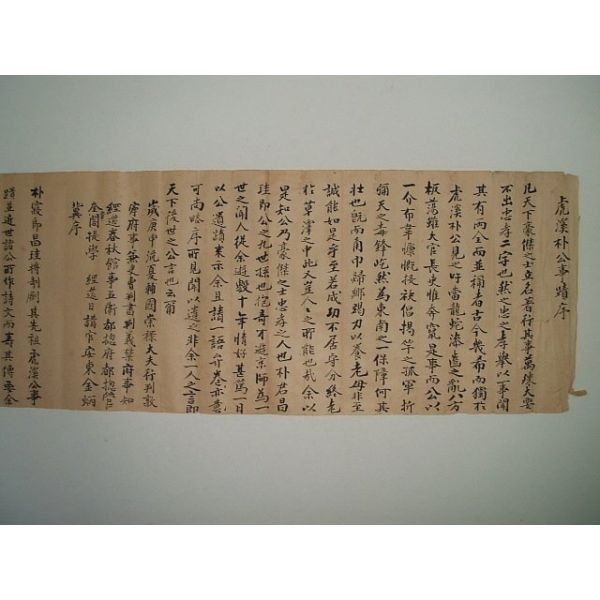 虎溪朴公事蹟序
凡天下豪傑之士立名著行其事萬殊大要
不出忠孝二字也然之忠之孝舉以一事聞
其有兩全而並稱者古今幾希而獨於
虎溪朴公見之於當龍蛇漆齒之亂八方
板蕩雖大官長吏惟奔竄是事而公以
一介布韋慷慨投袂倡揭竿之孤軍折
彌天之毒鋒屹然為東南之一保障何其
壯也既而角巾歸鄉竭力以養老母非至
誠能如是乎至若成功不居守分終老
於草澤之中此又豈人人之所能也哉余以
是知公乃豪傑之士忠孝之人也朴君昌
珪即公之九世孫也抱奇才遊京師為一
世之聞人從余遊數十年情好甚篤一日
以公遺蹟來示余且請一語弁卷亦書
可尚略序所見聞以遺之非余一人之言即
天下後世之公言也云爾
歲庚申流夏輔國崇祿大夫行判敦
寧府事兼吏曹判書判義禁府事知
經筵春秋館事五衛都摠府都摠管
奎閣提學 經筵日講官安東金炳
冀序
朴寢郎昌珪將剞劂其先祖虎溪公事
蹟並道世諸公所作諸文而壽其傳要余